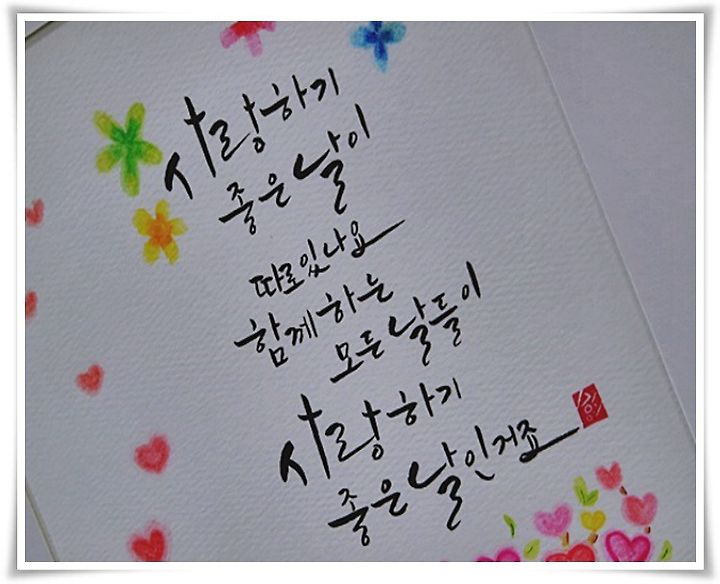 사랑하기
좋은 날이
따로있나요
함께하는
모든 날들이
사랑하기
좋은 날인거죠